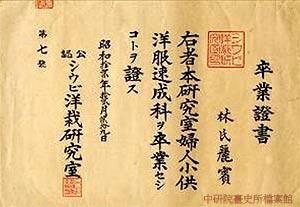 卒業證書
林氏麗賓
右者本研究室婦人小供
洋服速成科ヲ卒業セシ
コトヲ證ス
昭和拾年拾月日
公認シウビ洋栽研究室
第七號
中研院臺史所檔案館